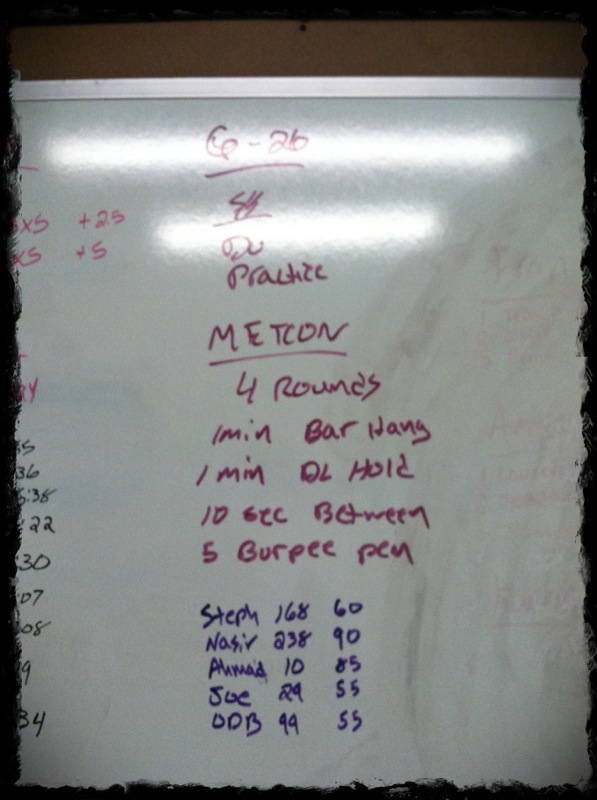 6-26
DU
Practice
METCON
4 Rounds
1min Bar Hang
1 min DL Hold
10 sec Between
5 Burpee pen
Steph 168 60
Nasir 238 90
Ahmad 10 85
Joe 29 55
ODB 99 55
x5 +25
x5 +5
36
:38
:22
:30
07
08
9
34